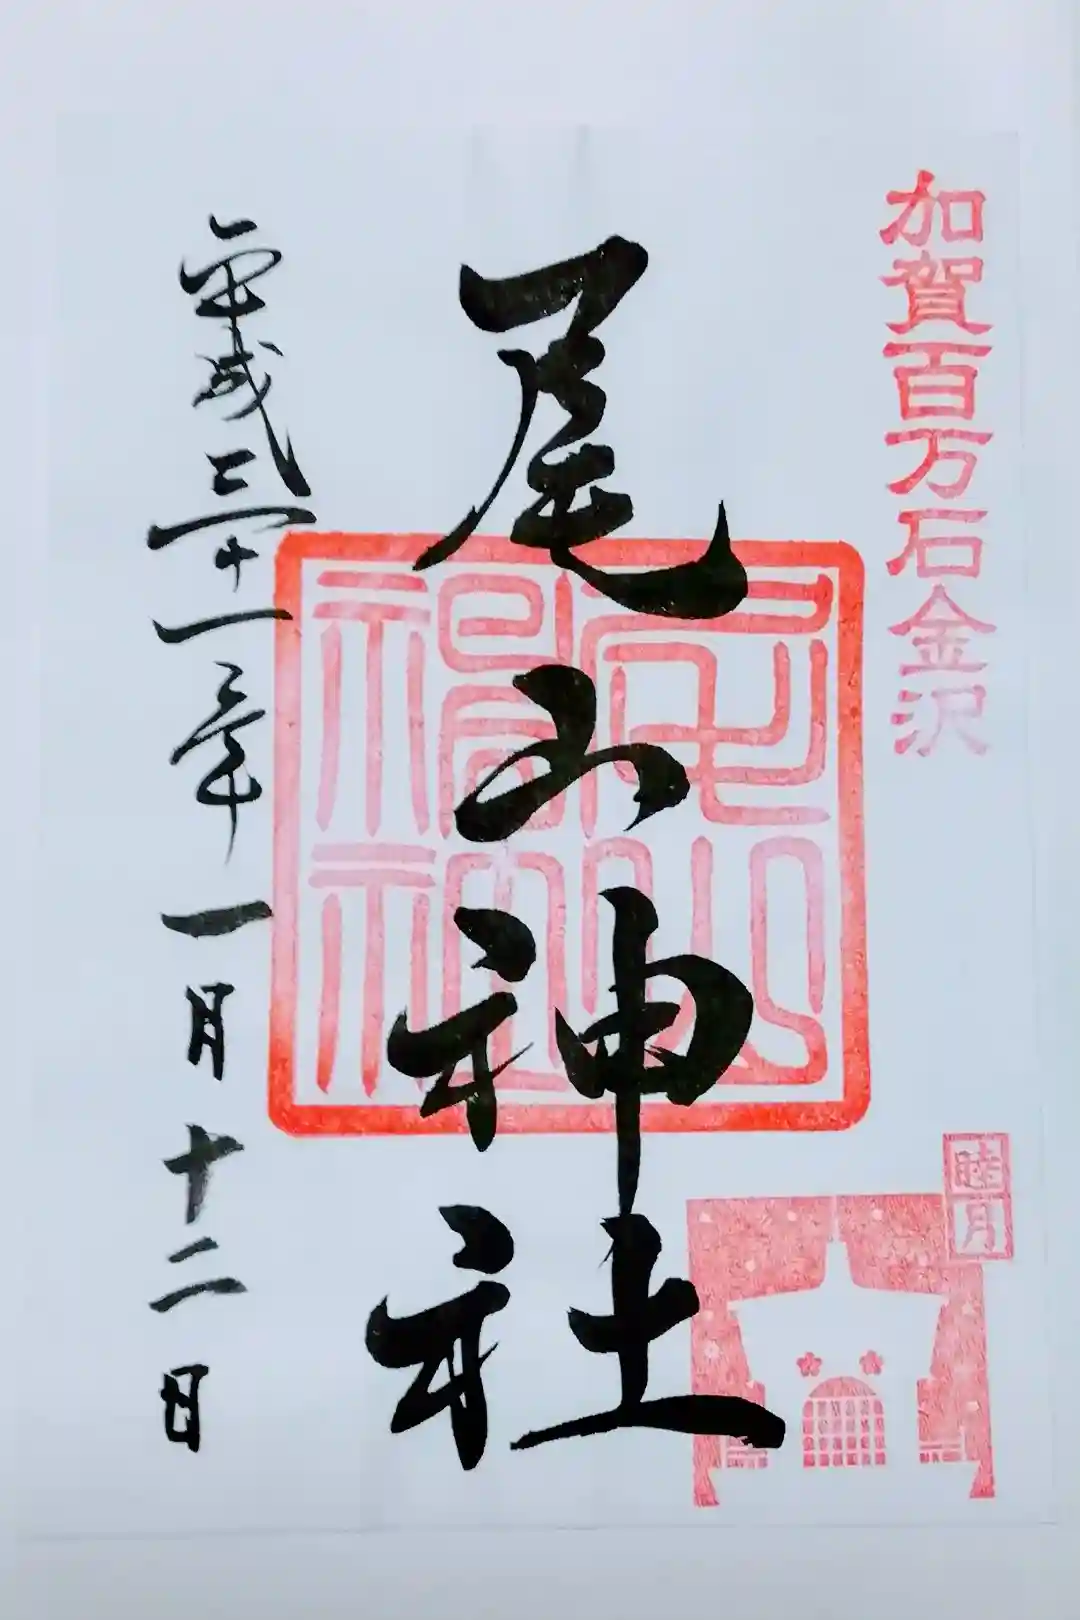 加賀百万石金沢
睦月
尾山神社
尾山神社
平成三十一年一月十二日